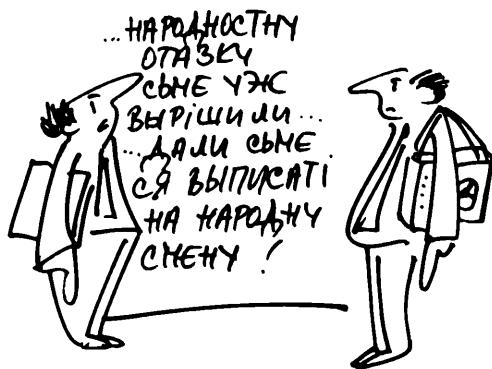 ...НАРОДНОСТНУ
ОТАЗКУ
СЬМЕ УЖ
ВЫРІШИЛИ...
...ДАЛИ СЬМЕ
СЯ ВЫПИСАТІ
НА НАРОДНУ
СМЕНУ!